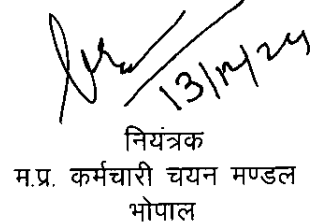 13/12/24
नियंत्रक
म.प्र. कर्मचारी चयन मण्डल
भोपाल